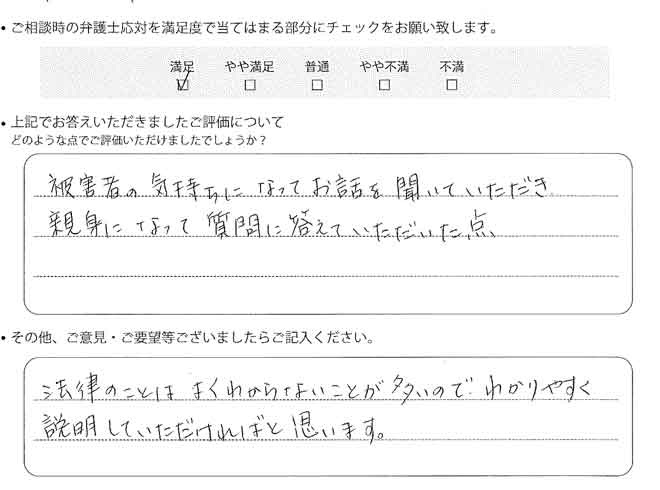 • ご相談時の弁護士応対を満足度で当てはまる部分にチェックをお願い致します。
満足 やや満足 普通 やや不満 不満
☑ □ □ □ □
• 上記でお答えいただきましたご評価について
どのような点でご評価いただけましたでしょうか？
被害者の気持ちになってお話を聞いていただき
親身になって質問に答えていただいた点、
• その他、ご意見・ご要望等ございましたらご記入ください。
法律のことはよくわからないことが多いので わかりやすく
説明していただければと思います。